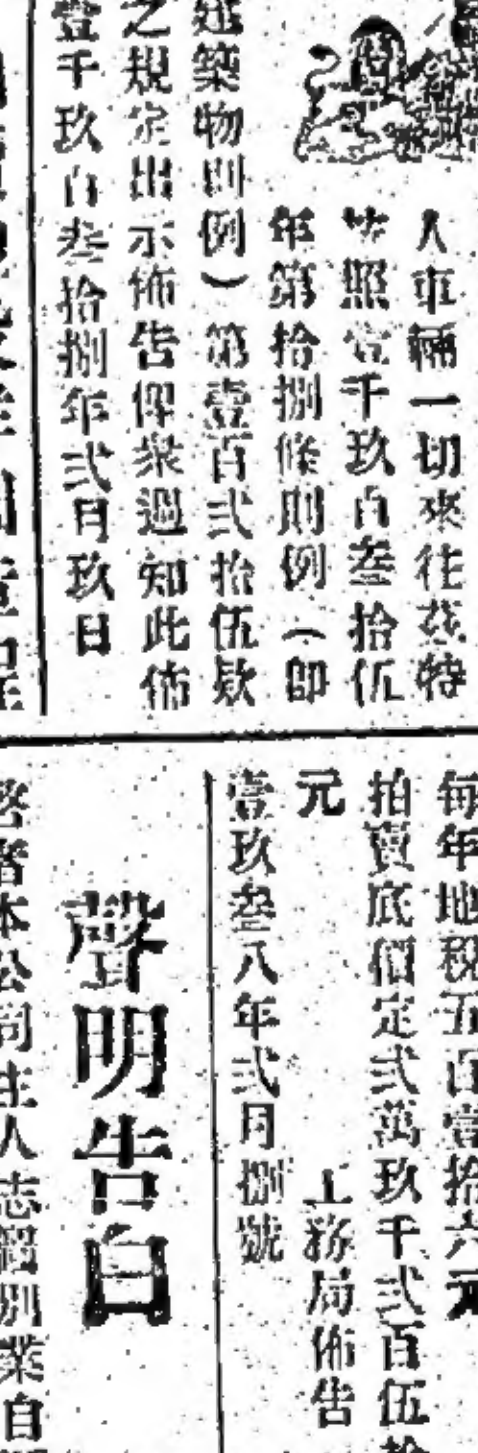 人車輛一切來往茲特
照壹千玖百叁拾伍
年第拾捌條則例（即
建築物則例）第壹百弍拾伍欵
之規定出示佈告俾衆週知此佈
壹千玖百叁拾捌年弍月玖日
每年地稅五百壹拾六元
拍賣底價定弍萬玖千弍百伍拾
元
工務局佈告
壹玖叁八年弍月捌號
聲明告白
啓者本公司主人志別業自